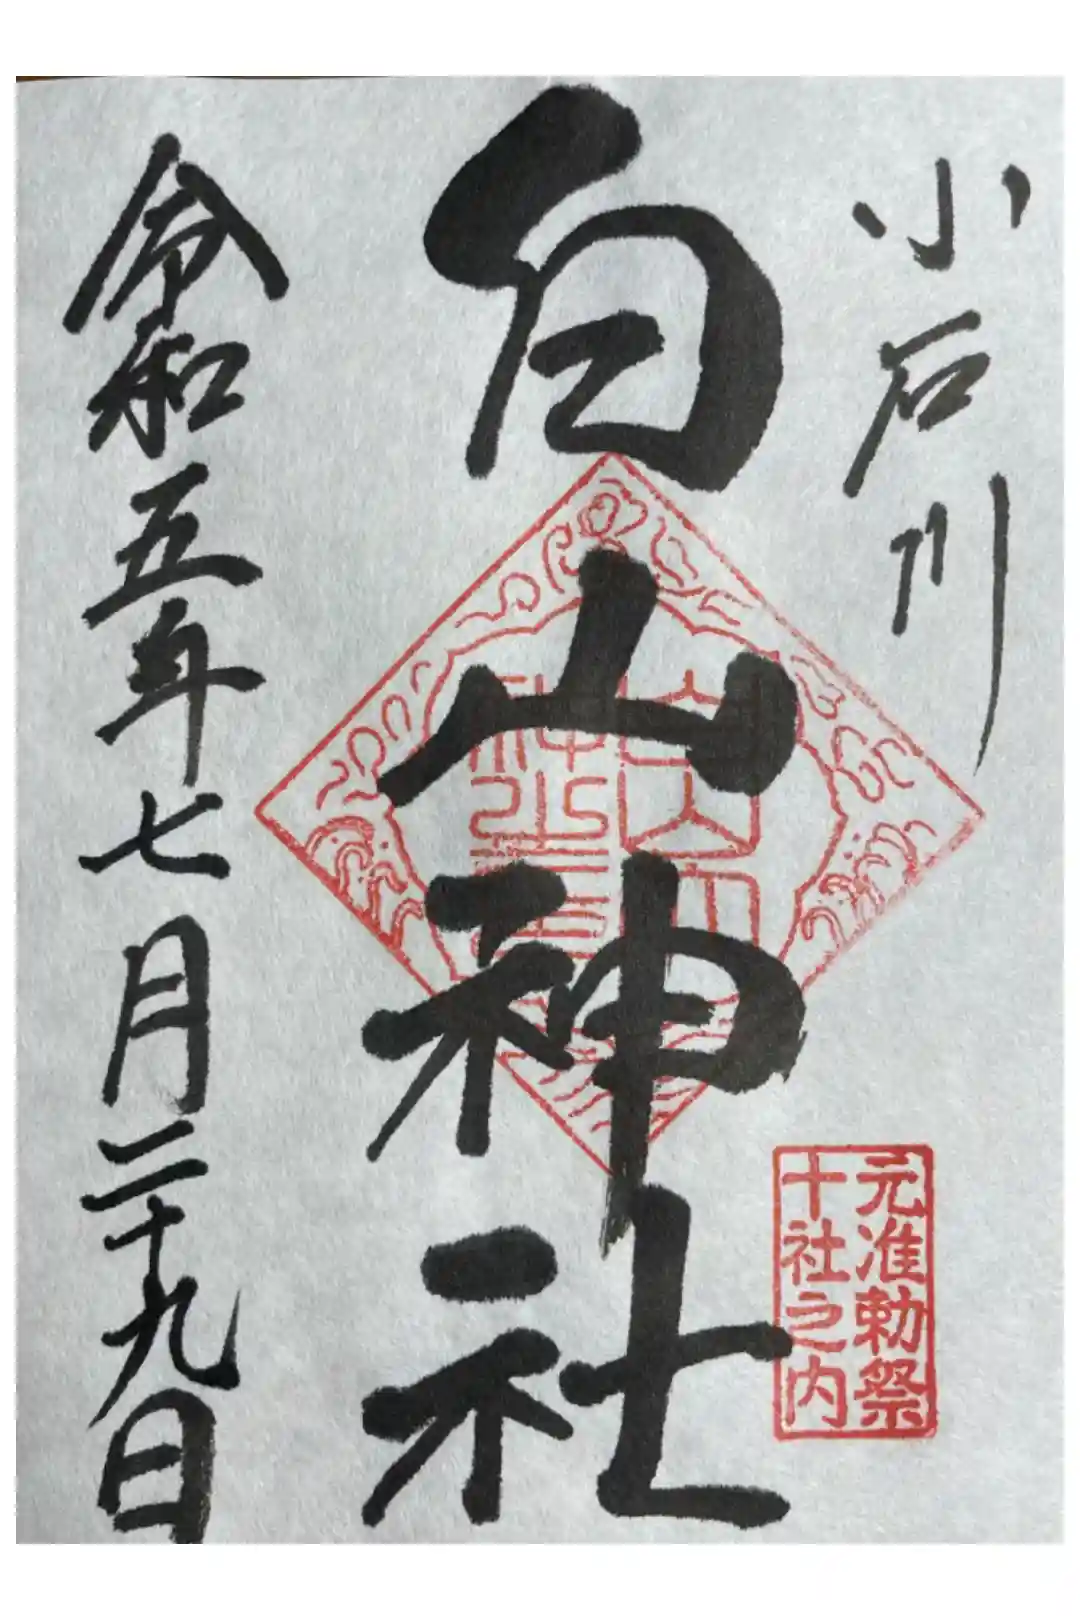 小石川
白山神社
元准勅祭
十社之内
令和五年七月二十九日